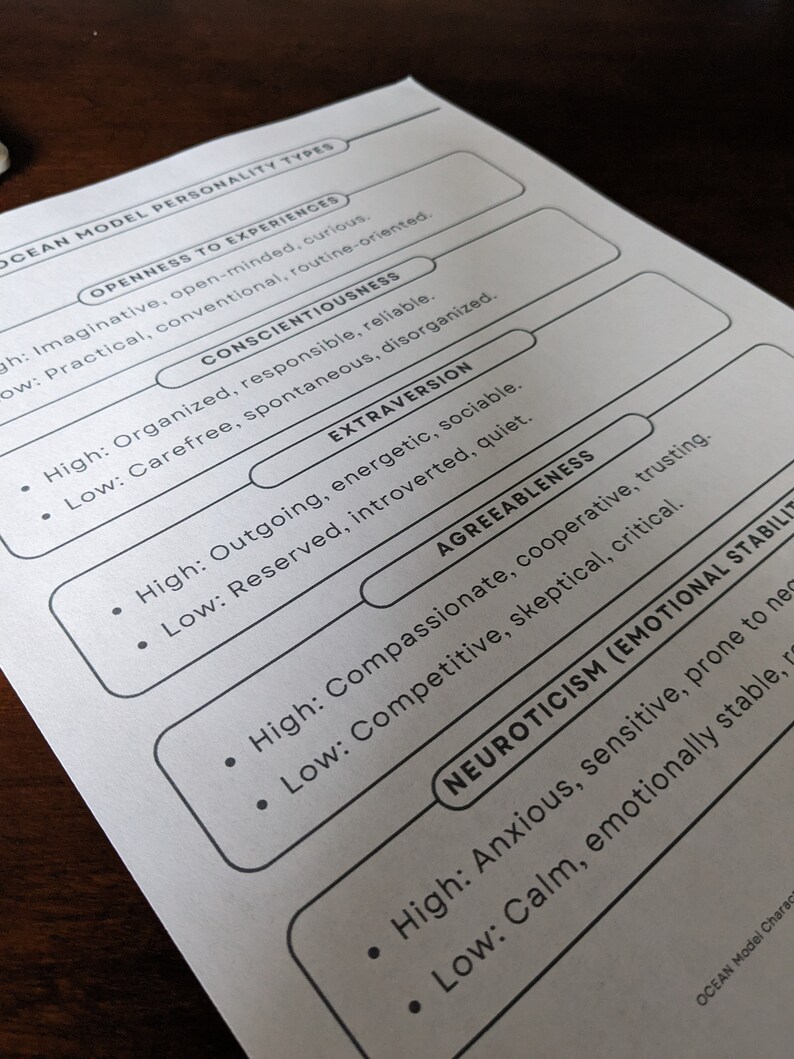 OCEAN MODEL PERSONALITY TYPES
OPENNESS TO EXPERIENCES
Imaginative, open-minded, curious.
Practical, conventional, routine-oriented.
CONSCIENTIOUSNESS
• High: Organized, responsible, reliable.
• Low: Carefree, spontaneous, disorganized.
EXTRAVERSION
• High: Outgoing, energetic, sociable.
• Low: Reserved, introverted, quiet.
AGREEABLENESS
• High: Compassionate, cooperative, trusting.
• Low: Competitive, skeptical, critical.
NEUROTICISM (EMOTIONAL
• High: Anxious, sensitive, prone to
• Low: Calm, emotionally stable,
OCEAN Model